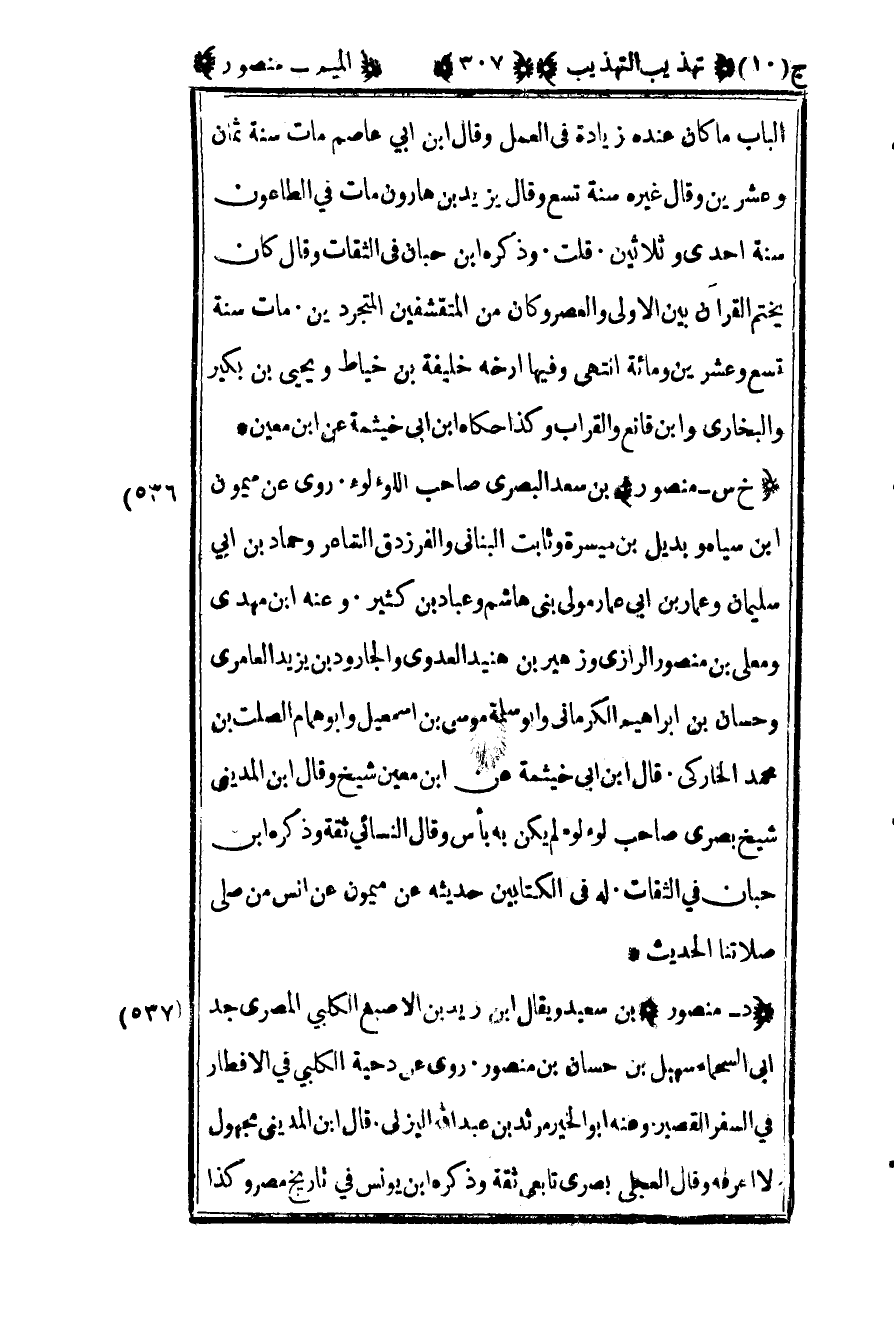 ج (١٠) ﴿ تهذيب التهذيب ﴾ ﴿ ٣٠٧ ﴾ ﴿ الميم ـ منصور ﴾
الباب ماكان عنده زيادة فى العمل وقال ابن ابي عاصم مات سنة ثمان
وعشرين وقال غيره سنة تسع وقال يزيد بن هارون مات في الطاعون
سنة احدى و ثلاثين · قلت · وذكره ابن حبان فى الثقات وقال كان
يختم القرآن بين الاولى والعصر وكان من المتقشفين المتجردين · مات سنة
تسع وعشرين ومائة انتهى وفيها ارخه خليفة بن خياط و يحيى بن بكير
والبخارى وابن قانع والقراب وكذا حكاه ابن ابى خيثمة عن ابن معين *
﴿ خ س ـ منصور ﴾ بن سعد البصرى صاحب اللوءلوء · روى عن ميمون
(٥٣٦
ابن سياه و بديل بن ميسرة وثابت البنانى والفرزدق الشاعر وحماد بن ابي
سليمان وعمار بن ابي عمار مولى بنى هاشم وعباد بن كثير · وعنه ابن مهدى
ومعلى بن منصور الرازى وزهير بن هنيد العدوى والجارود بن يزيد العامرى
وحسان بن ابراهيم الكرمانى وابو سلمة موسى بن اسمعيل وابوهمام الصلت بن
محمد الخاركى · قال ابن ابى خيثمة عن ابن معين شيخ وقال ابن المدينى
شيخ بصرى صاحب لوءلوء لم يكن به بأس وقال النسائي ثقة وذكره ابن
حبان في الثقات · له فى الكتابين حديثه عن ميمون عن انس من صلى
صلاتنا الحديث *
﴿ د ـ منصور ﴾ بن سعيد ويقال ابن زيد بن الاصبغ الكلبي المصرى جد
(٥٣٧)
ابى السحماء سهيل بن حسان بن منصور · روى عن دحية الكلبي في الافطار
في السفر القصير · وعنه ابو الخير مرثد بن عبد الله اليزنى · قال ابن المدينى مجهول
لا اعرفه وقال العجلى بصرى تابعى ثقة وذكره ابن يونس في تاريخ مصر وكذا